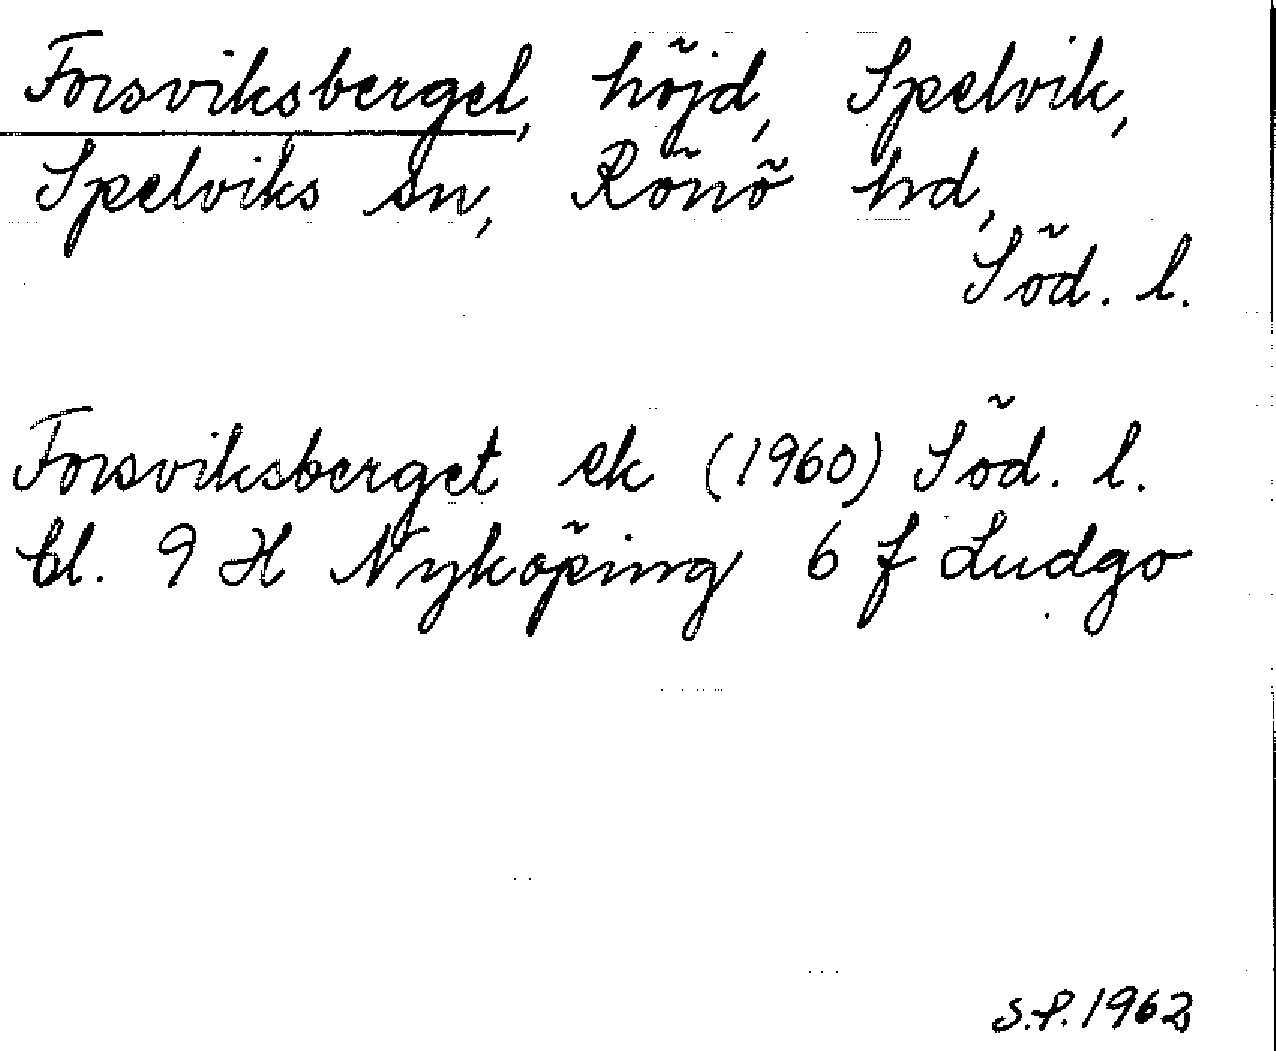 Forsviksberget, höjd, Spelvik,
Spelviks sn, Rönö hd,
Söd. l.
Forsviksberget ek (1960) Söd. l.
bl. 9 H Nyköping 6 f Ludgo
S.P. 1962